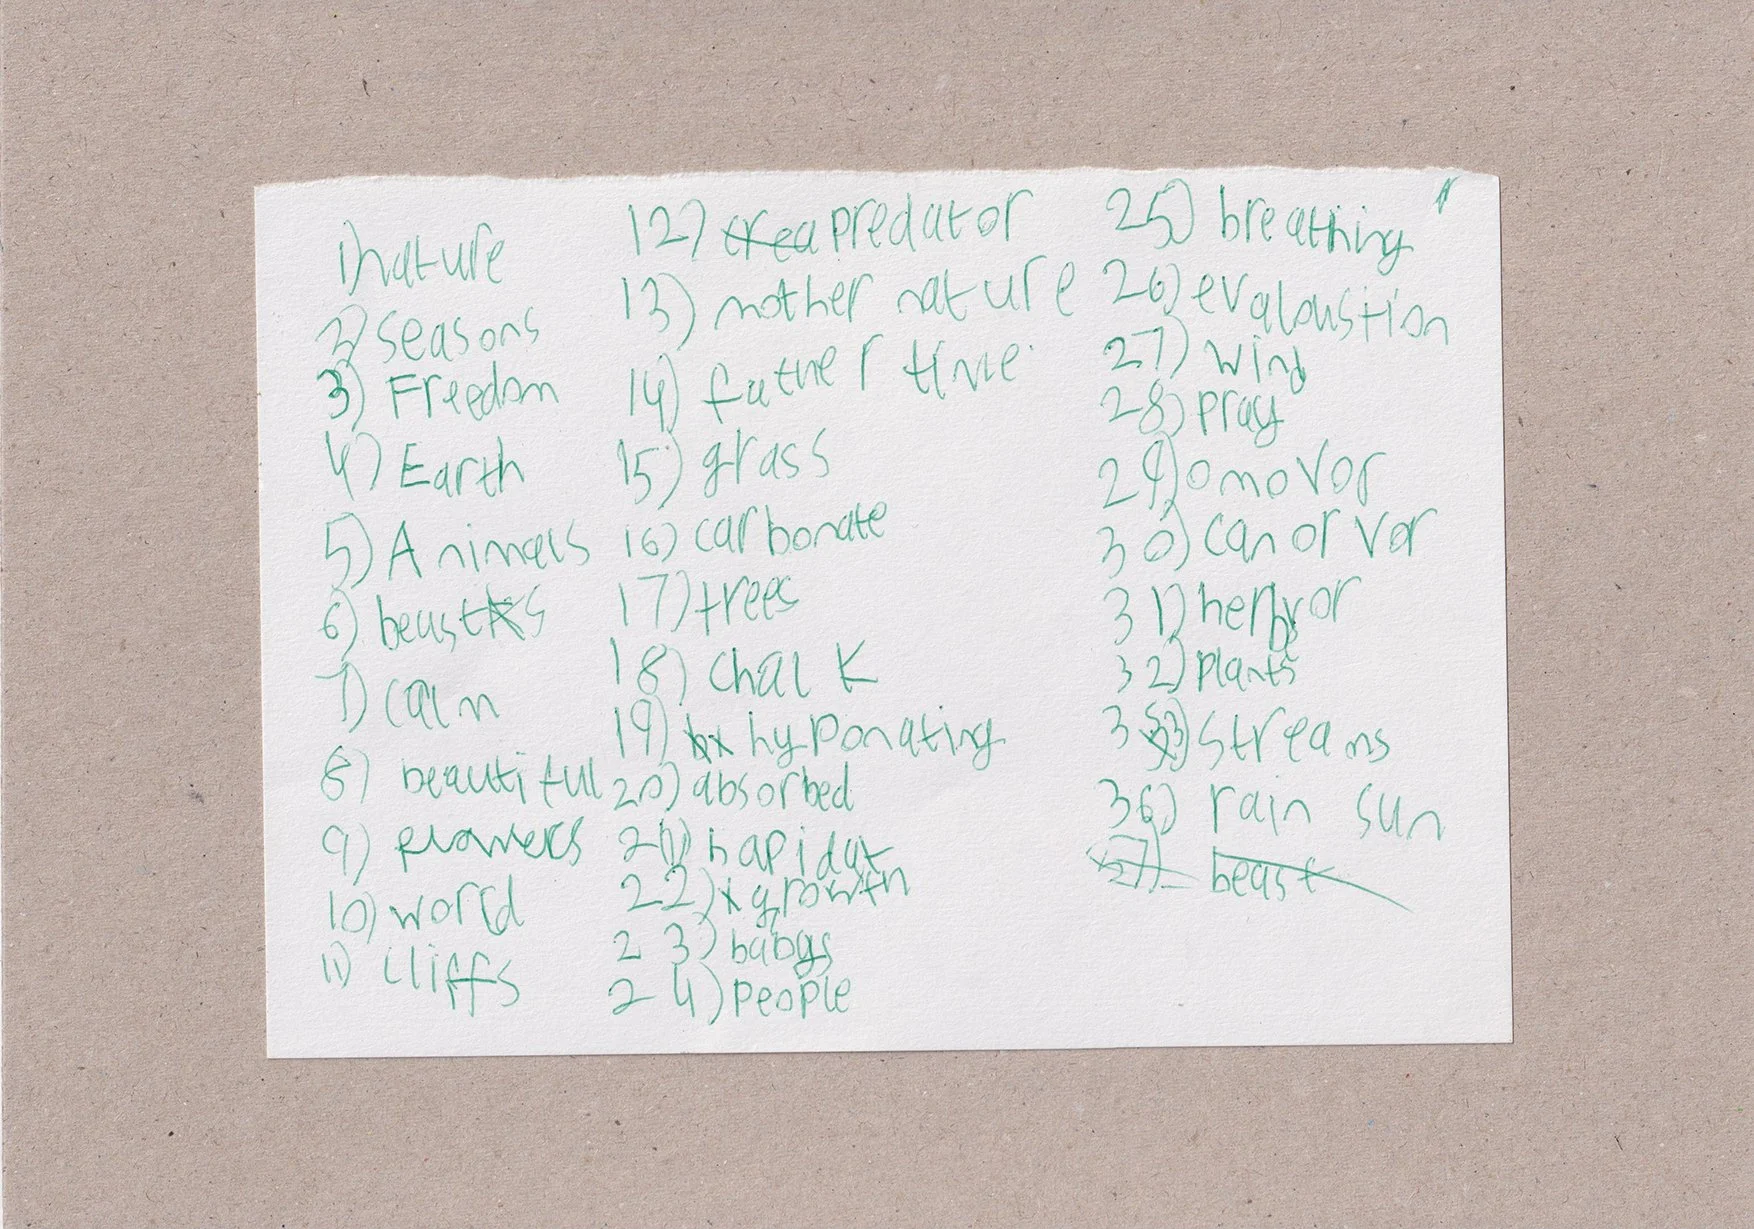 1) nature
2) seasons
3) Freedom
4) Earth
5) Animals
6) beasts
7) calm
8) beautiful
9) flowers
10) world
11) cliffs
12) predator
13) mother nature
14) father time
15) grass
16) carbonate
17) trees
18) chalk
19) hyponating
20) absorbed
21) hapidat
22) growth
23) babys
24) people
25) breathing
26) evaloustion
27) wind
28) pray
29) omovor
30) canorvor
31) herbvor
32) plants
33) streams
36) rain sun
37) beast